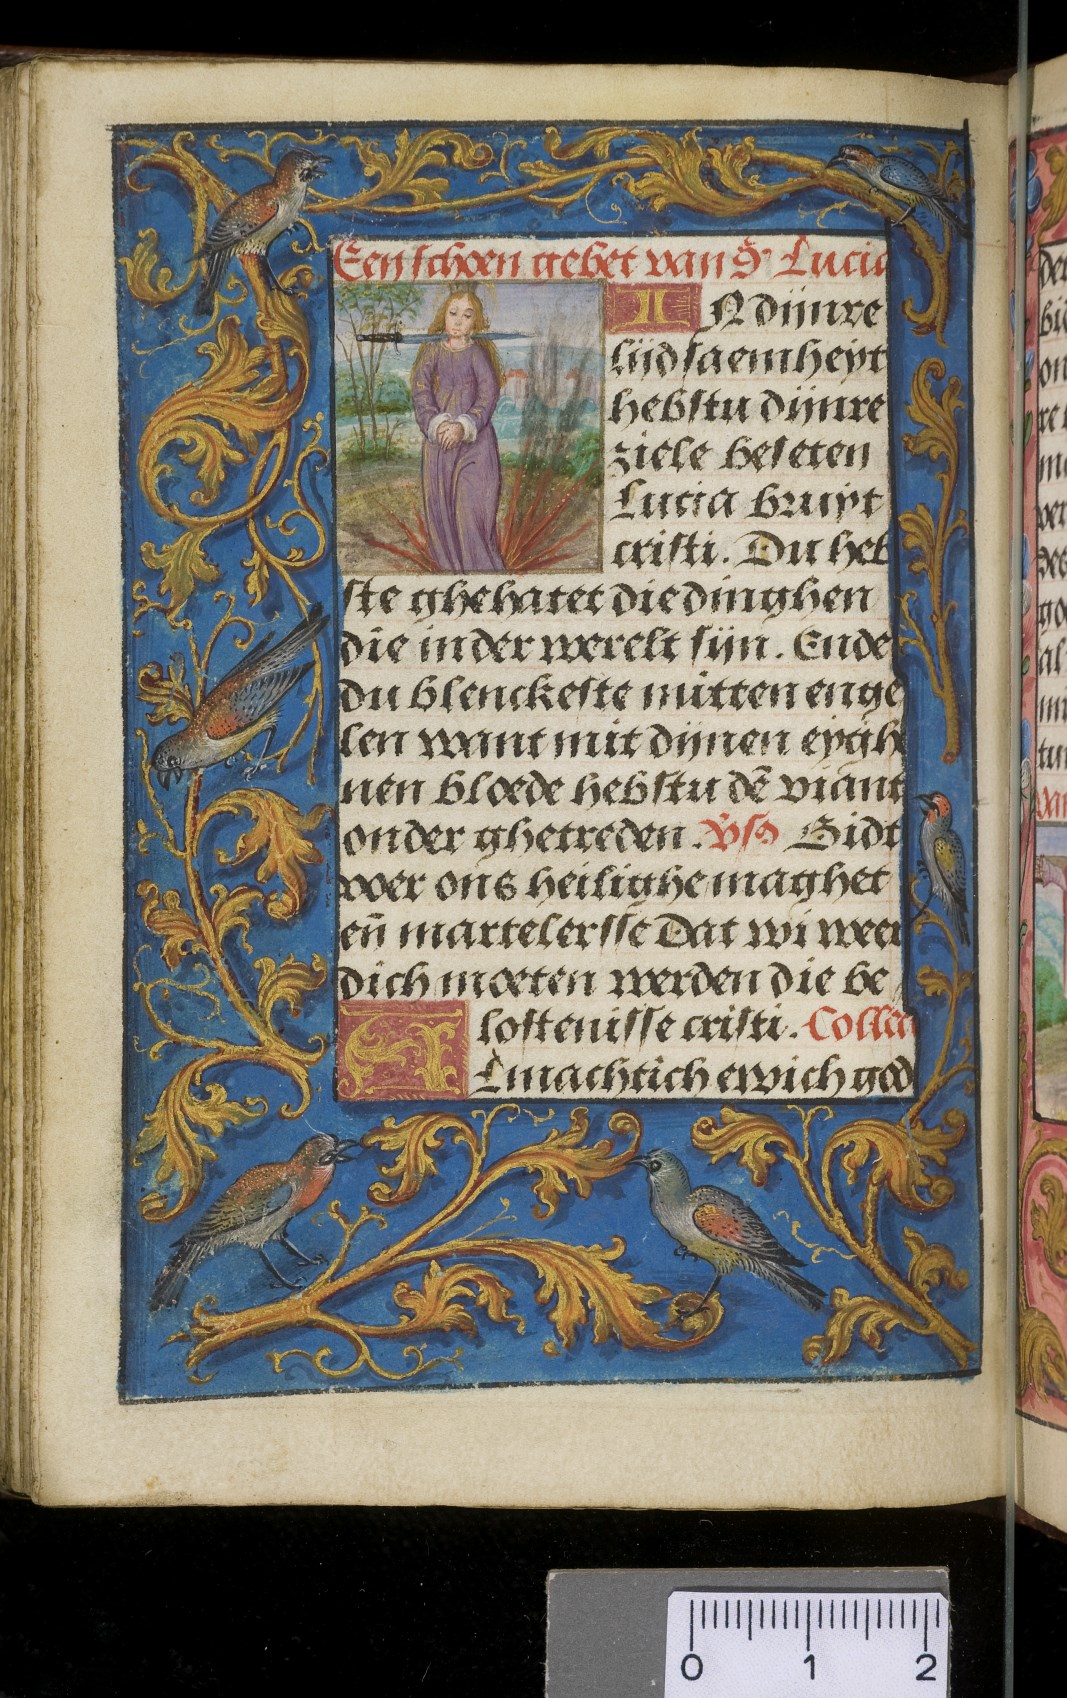 Een schoen gebet van S. Lucia
IN dijnre
lijdsaemheyt
hebstu dijnre
ziele beseten
Lucia bruyt
cristi. Du heb
ste ghehatet die dinghen
die in der werelt sijn. Ende
du blenckeste mitten enge
len want mit dijnen eygh
nen bloede hebstu dē viant
onder ghetreden. Vs̄ Bidt
voer ons heilighe maghet
eñ martelersse Dat wi weer
dich moeten werden die be
loftenisse cristi. Collec
ALmachtich ewich god
0 1 2